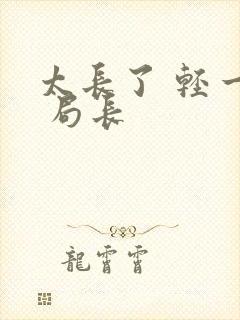 太長了 輕一
局長
龍霄霄